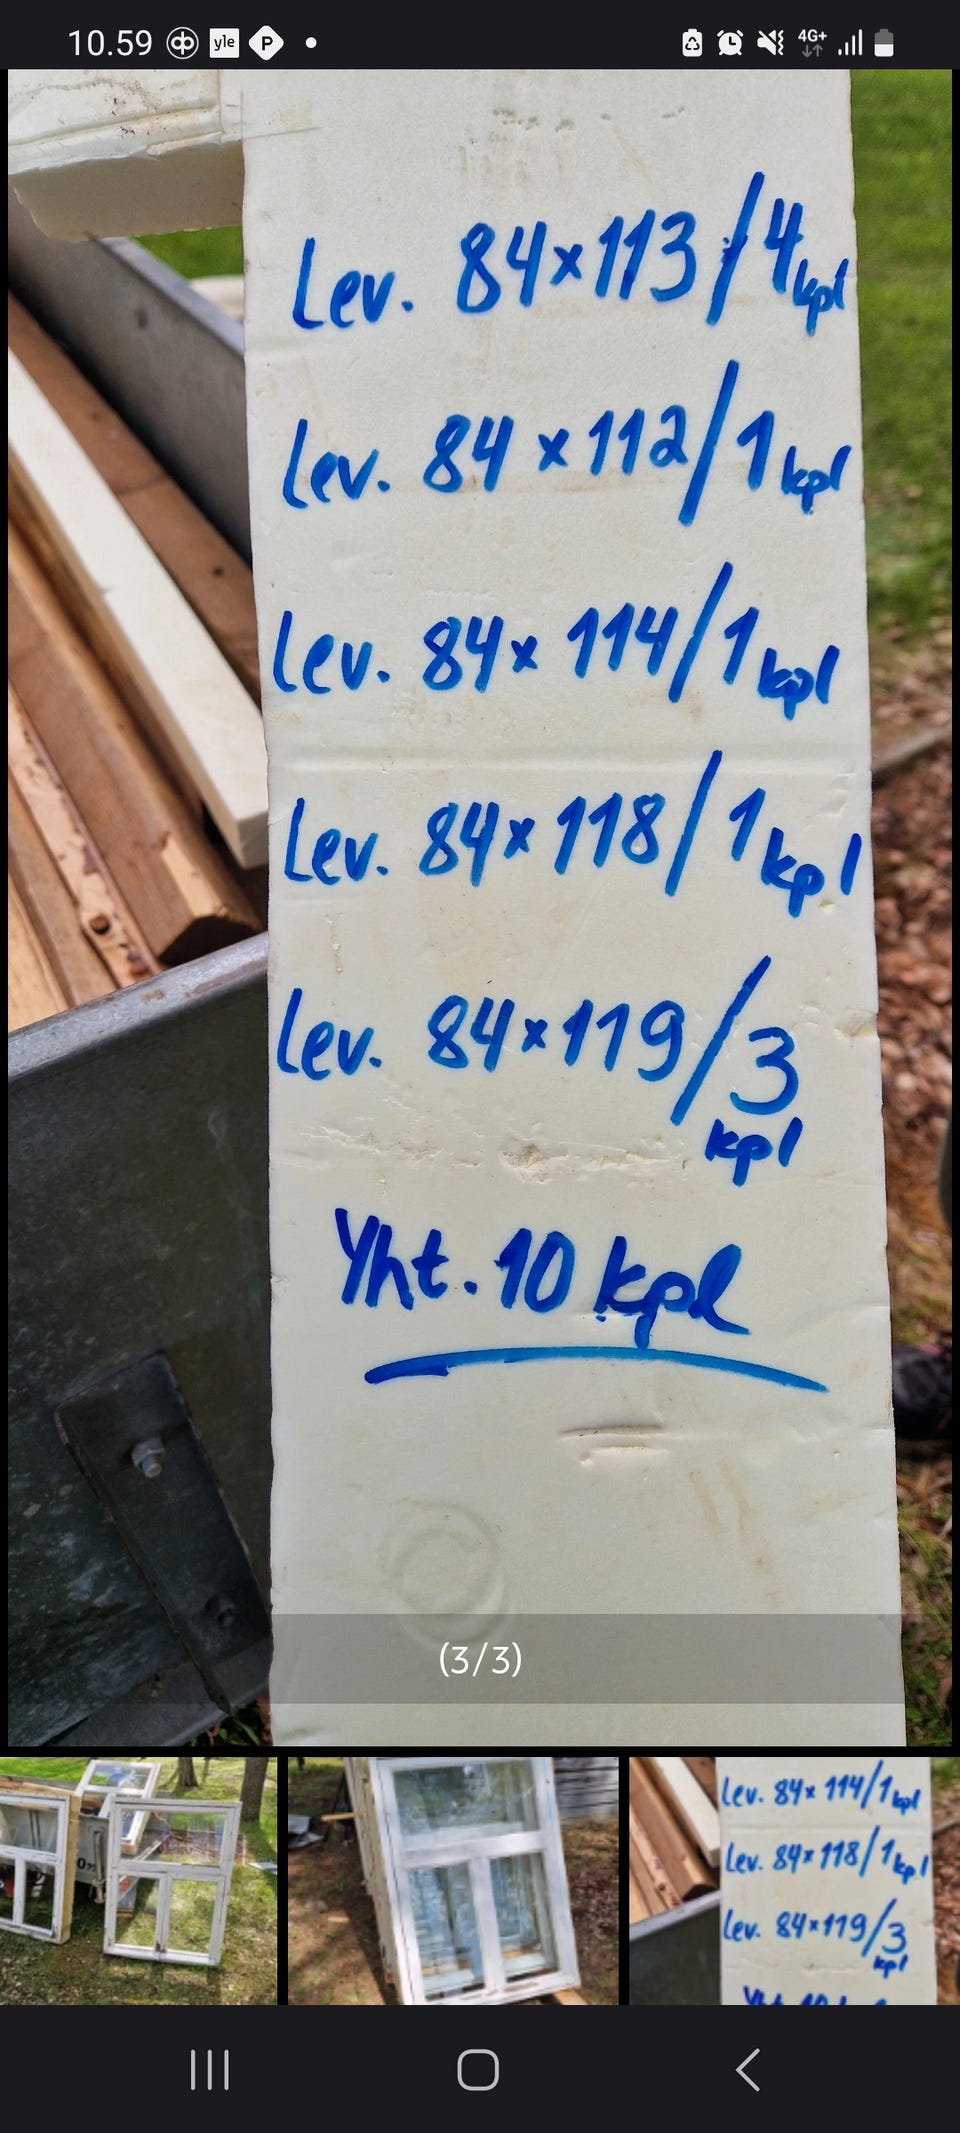 10.59 yle P 4G+
Lev. 84x113/4kpl
Lev. 84x112/1kpl
Lev. 84x114/1kpl
Lev. 84x118/1kpl
Lev. 84x119/3
kpl
Yht. 10 kpl
(3/3)
Lev. 84x114/1kpl
Lev. 84x118/1kpl
Lev. 84x119/3
kpl